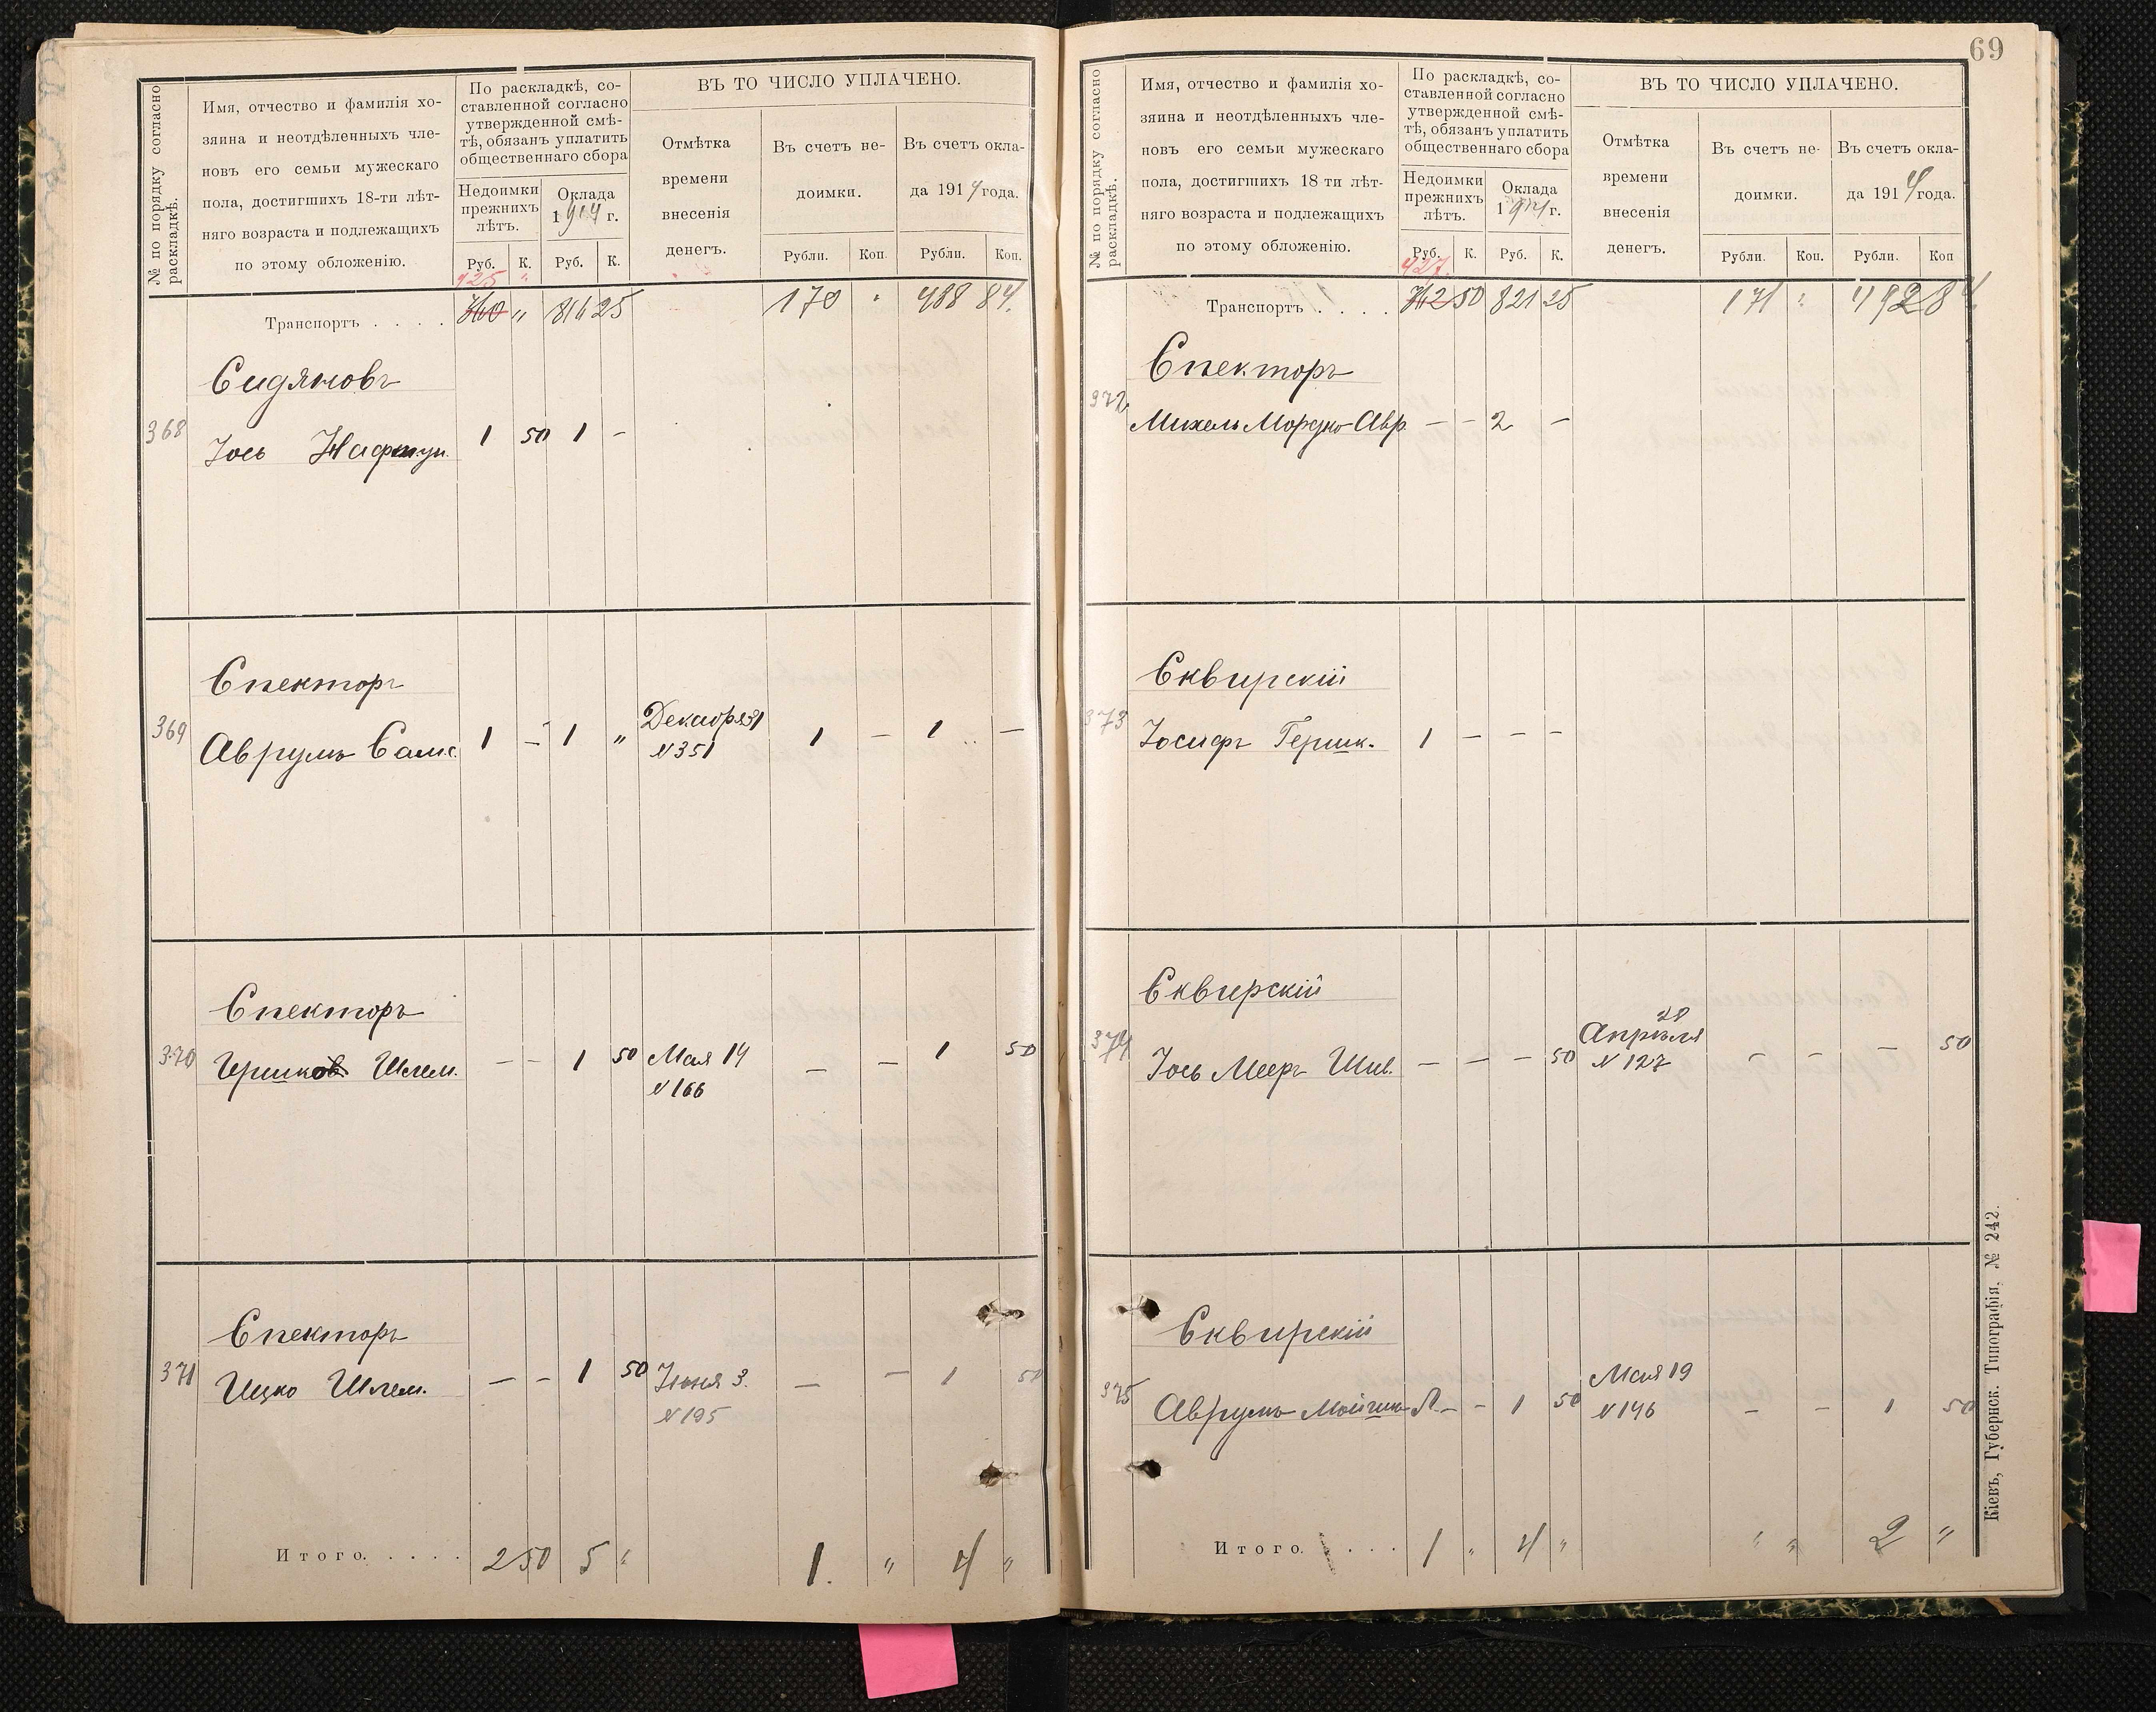 № по порядку согласно
раскладкѣ.
Имя, отчество и фамилія хо-
зяина и неотдѣленныхъ чле-
новъ его семьи мужескаго
пола, достигшихъ 18-ти лѣт-
няго возраста и подлежащихъ
по этому обложенію.
По раскладкѣ, со-
ставленной согласно
утвержденной смѣ-
тѣ, обязанъ уплатить
общественнаго сбора
Недоимки
прежнихъ
лѣтъ.
Оклада
1914 г.
Руб. К. Руб. К.
ВЪ ТО ЧИСЛО УПЛАЧЕНО.
Отмѣтка
времени
внесенія
денегъ.
Въ счетъ не-
доимки.
Въ счетъ окла-
да 1914 года.
Рубли. Коп. Рубли. Коп.
425 "
Транспортъ . . . . " 816 25 170 " 488 84.
Сидяковъ
368 Іось Нафтул. 1 50 1 –
Спекторъ
369 Аврумъ Самс. 1 – 1 " Декабря 31 1 – 1 –
№ 351
Спекторъ
370 Шлем. – – 1 50 Мая 14 – – 1 50
№ 166
Спекторъ
371 Ицко Шлем. – – 1 50 Іюня 3. – – 1 50
№ 195
Итого. . . . . 2 50 5 " 1. " 4 "
69
№ по порядку согласно
раскладкѣ.
Имя, отчество и фамилія хо-
зяина и неотдѣленныхъ чле-
новъ его семьи мужескаго
пола, достигшихъ 18 ти лѣт-
няго возраста и подлежащихъ
по этому обложенію.
По раскладкѣ, со-
ставленной согласно
утвержденной смѣ-
тѣ, обязанъ уплатить
общественнаго сбора
Недоимки
прежнихъ
лѣтъ.
Оклада
1914 г.
Руб. К. Руб. К.
ВЪ ТО ЧИСЛО УПЛАЧЕНО.
Отмѣтка
времени
внесенія
денегъ.
Въ счетъ не-
доимки.
Въ счетъ окла-
да 1914 года.
Рубли. Коп. Рубли. Коп
427.
Транспортъ . . . . 50 821 25 171 " 492 84.
Спекторъ
372 Михель Мордко Авр. – – 2 –
Сквирскій
373 Іосифъ Гершк. 1 – – –
Сквирскій
374 Іось Мееръ Шил. – – – 50 Апрѣля 28 – – – 50
№ 127
Сквирскій
375 Аврумъ Мойшко Л. – – 1 50 Мая 19 – – 1 50
№ 146
Итого. . . . 1 " 4 " " " 2 "
Кіевъ, Губернск. Типографія, № 242.